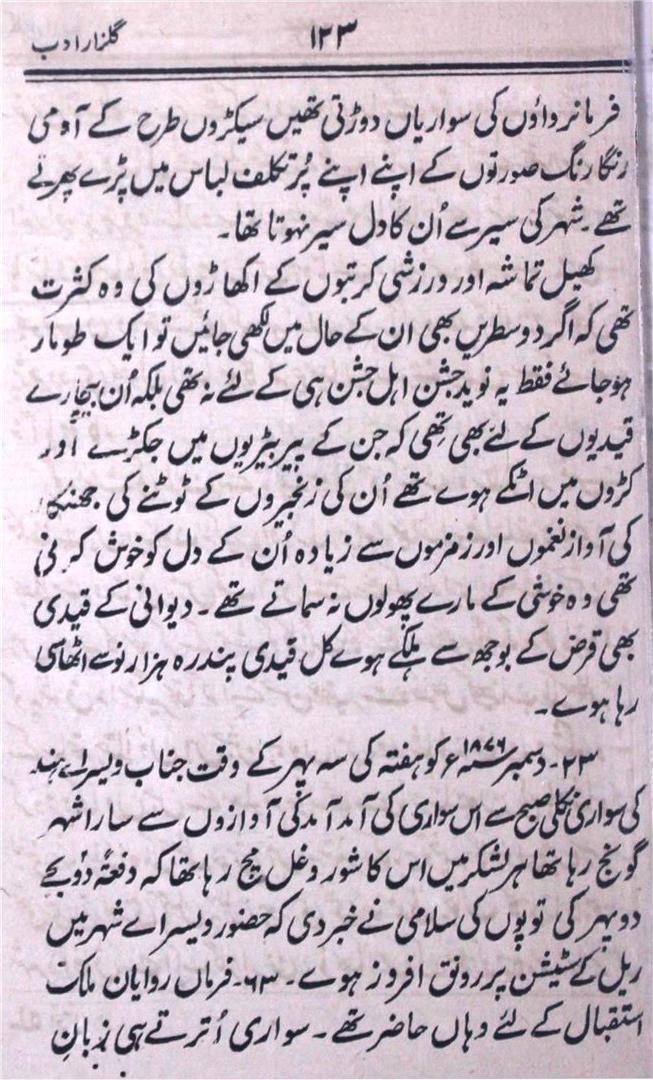 گلزار ادب ۱۲۳
فرمانرواؤں کی سواریاں دوڑتی تھیں سیکڑوں طرح کے آدمی
رنگا رنگ صورتوں کے اپنے اپنے پُر تکلف لباس میں پڑے پھرتے
تھے۔ شہر کی سیر سے اُن کا دل سیر نہوتا تھا۔
کھیل تماشہ اور ورزشی کرتبوں کے اکھاڑوں کی وہ کثرت
تھی کہ اگر دو سطریں بھی ان کے حال میں لکھی جائیں تو ایک طومار
ہوجائے فقط یہ نوید جشن اہل جشن ہی کے لئے نہ تھی بلکہ اُن بیچارے
قیدیوں کے لئے بھی تھی کہ جن کے پیر بیڑیوں میں جکڑے اور
کڑوں میں اٹکے ہوے تھے اُن کی زنجیروں کے ٹوٹنے کی جھنکار
کی آواز نغموں اور زمزموں سے زیادہ اُن کے دل کو خوش کرتی
تھی وہ خوشی کے مارے پھولوں نہ سماتے تھے۔ دیوانی کے قیدی
بھی قرض کے بوجھ سے ہلکے ہوے کل قیدی پندرہ ہزار نوسے اٹھاسی
رہا ہوے۔
۲۳۔ دسمبر ۱۸۷۶ء کو ہفتہ کی سہ پہر کے وقت جناب ویسراے ہند
کی سواری نکلی صبح سے اس سواری کی آمد آمد کی آوازوں سے سارا شہر
گونج رہا تھا ہر لشکر میں اس کا شور و غل مچ رہا تھا کہ دفعتہً دو بجے
دوپہر کی توپوں کی سلامی نے خبر دی کہ حضور ویسراے شہر میں
ریل کے سٹیشن پر رونق افروز ہوے۔ ۶۳۔ فرماں روایان ملک
استقبال کے لئے وہاں حاضر تھے۔ سواری اُترتے ہی زبانِ